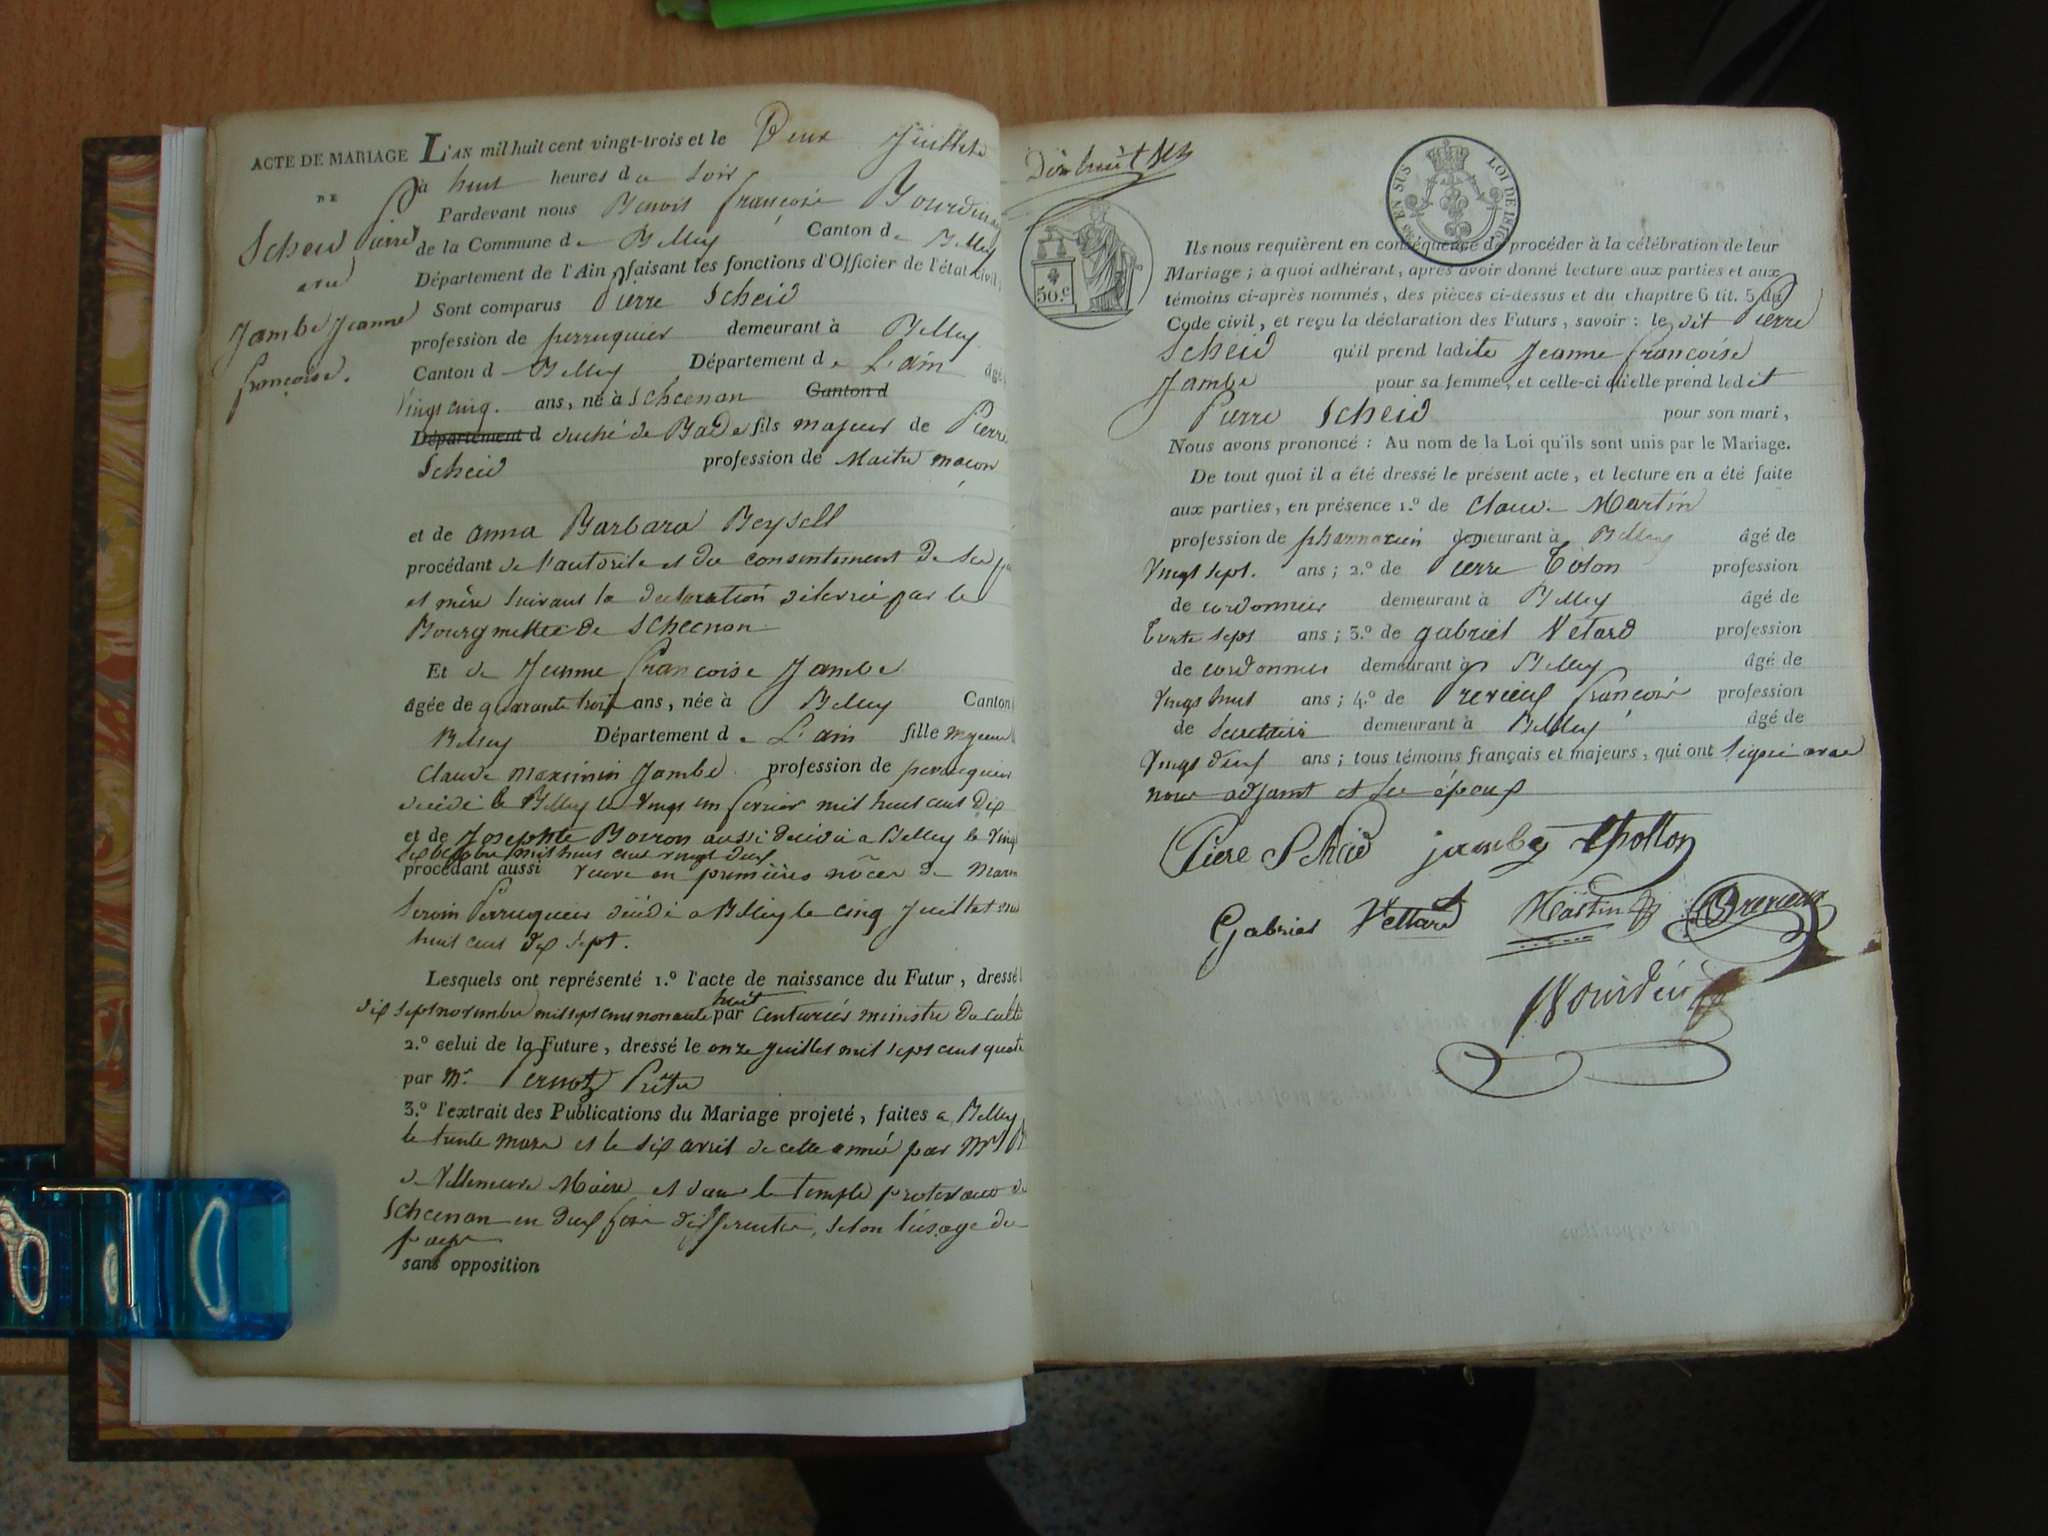 ACTE DE MARIAGE
DE
Scheid Pierre
avec
Jambe Jeanne
françoise.
L'AN mil huit cent vingt-trois et le Deux Juillet
à huit heures du soir
Pardevant nous Benoit françois Bourdin
de la Commune de Belley Canton de Belley
Département de l'Ain faisant les fonctions d'Officier de l'état civil,
Sont comparus Pierre Scheid
profession de perruquier demeurant à Belley
Canton d Belley Département de L'ain âgé
Vingt cinq. ans, né à Scheenon Canton d
Département d duché de Bade fils majeur de Pierre
Scheid profession de Maitre maçon
et de anna Barbara Beysell
procédant de l'autorité et du consentement de ses
et mère suivant la declaration délivrée par le
Bourgmettre de Scheenon
Et de Jeanne françoise Jambe
âgée de quarante trois ans, née à Belley Canton
Belley Département de L'ain fille majeure
Claude maximin Jambe profession de perruquier
décédé à Belley le Vingt un fevrier mil huit cent dix
et de Josephte Bovron aussi décédée a Belley le Vingt
six octobre mil huit cent vingt deux
procédant aussi veuve en premières nôces de
Perruquier décédé a Belley le cinq Juillet mil
huit cent dix sept.
Lesquels ont représenté 1.º l'acte de naissance du Futur, dressé
dix sept novembre mil sept cent nonante huit par Centuriés ministre du culte
2.º celui de la Future, dressé le onze Juillet mil sept cent quatre
par Mr. Pernotz Prêtre
3.º l'extrait des Publications du Mariage projeté, faites a Belley
le trente mars et le six avril de cette année par Mr
de Villeneuve Maire et dans le temple protestant de
Scheenon en deux fois differentes, selon l'usage du
pays
sans opposition
Dix huit
EN SUS LOI DE 1816
50.c
Ils nous requièrent en conséquence de procéder à la célébration de leur
Mariage; à quoi adhérant, après avoir donné lecture aux parties et aux
témoins ci-après nommés, des pièces ci-dessus et du chapitre 6 tit. 5 du
Code civil, et reçu la déclaration des Futurs, savoir: le dit Pierre
Scheid qu'il prend ladite Jeanne françoise
Jambe pour sa femme, et celle-ci qu'elle prend ledit
Pierre Scheid pour son mari,
Nous avons prononcé: Au nom de la Loi qu'ils sont unis par le Mariage.
De tout quoi il a été dressé le présent acte, et lecture en a été faite
aux parties, en présence 1.º de Claude Martin
profession de pharmacien demeurant à Belley âgé de
Vingt sept. ans; 2.º de Pierre Tolon profession
de cordonnier demeurant à Belley âgé de
trente sept ans; 3.º de gabriel Vetard profession
de cordonnier demeurant à Belley âgé de
Vingt huit ans; 4.º de Previeux françois profession
de Secretaire demeurant à Belley âgé de
Vingt deux ans; tous témoins français et majeurs, qui ont signé avec
nous adjoint et les époux
Piere Scheid jambe thollon
Gabriel Vettard Martin Previeux
Bourdin